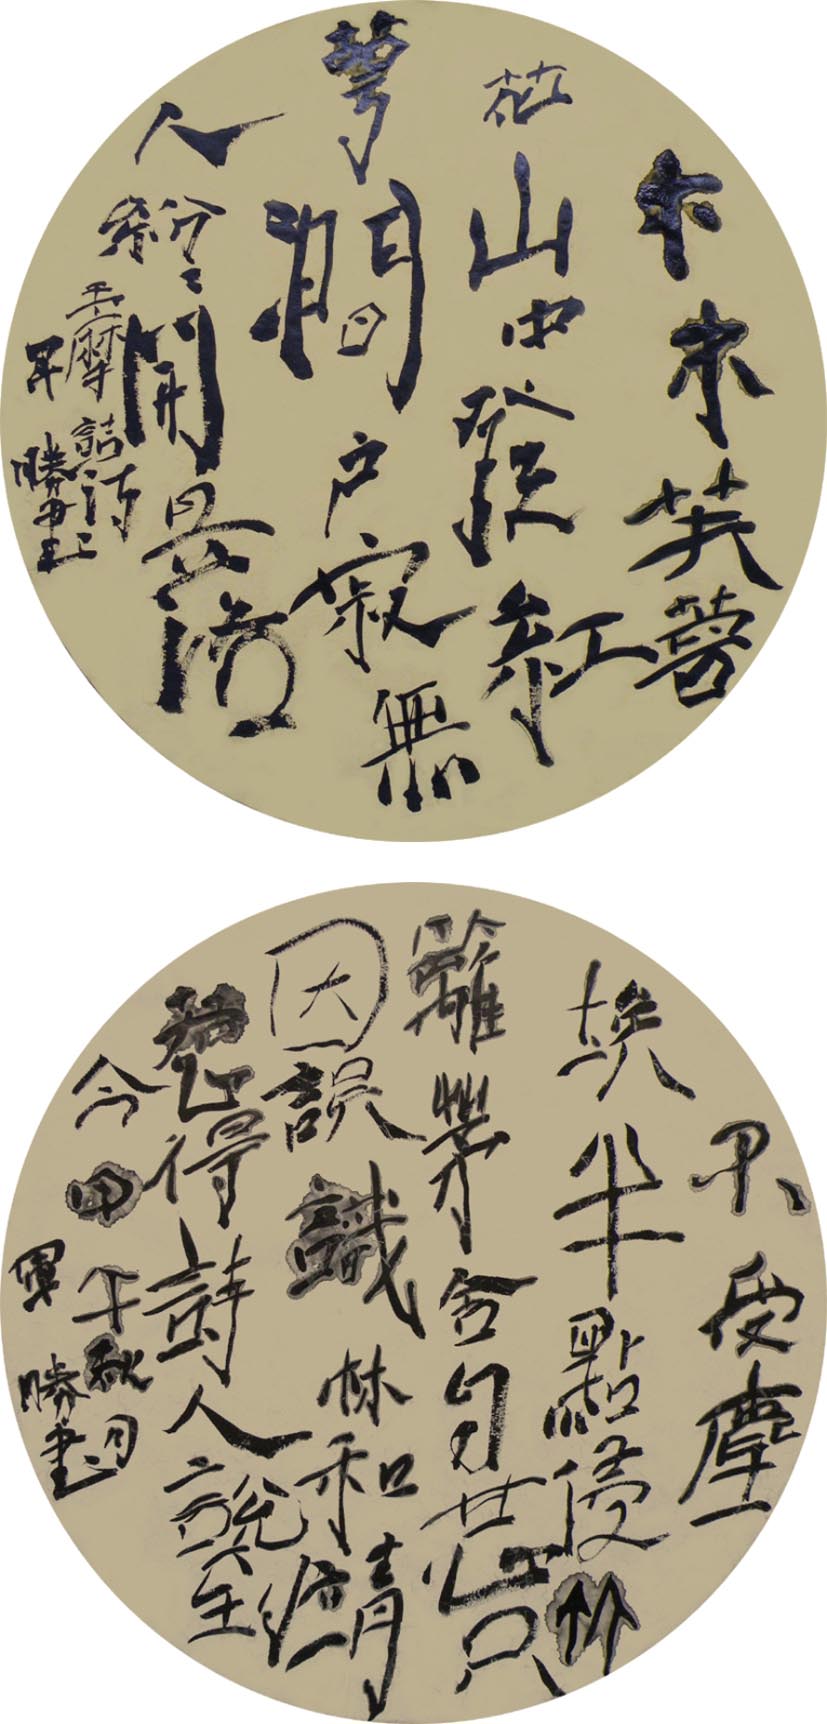 木末芙蓉
花山中發紅
萼澗户寂無
人紛〻開且落
王摩詰詩
軍勝書
不受塵
埃半點侵竹
籬茅舍自甘心只
因誤識林和靖
惹得詩人說到
今甲午秋月
軍勝書